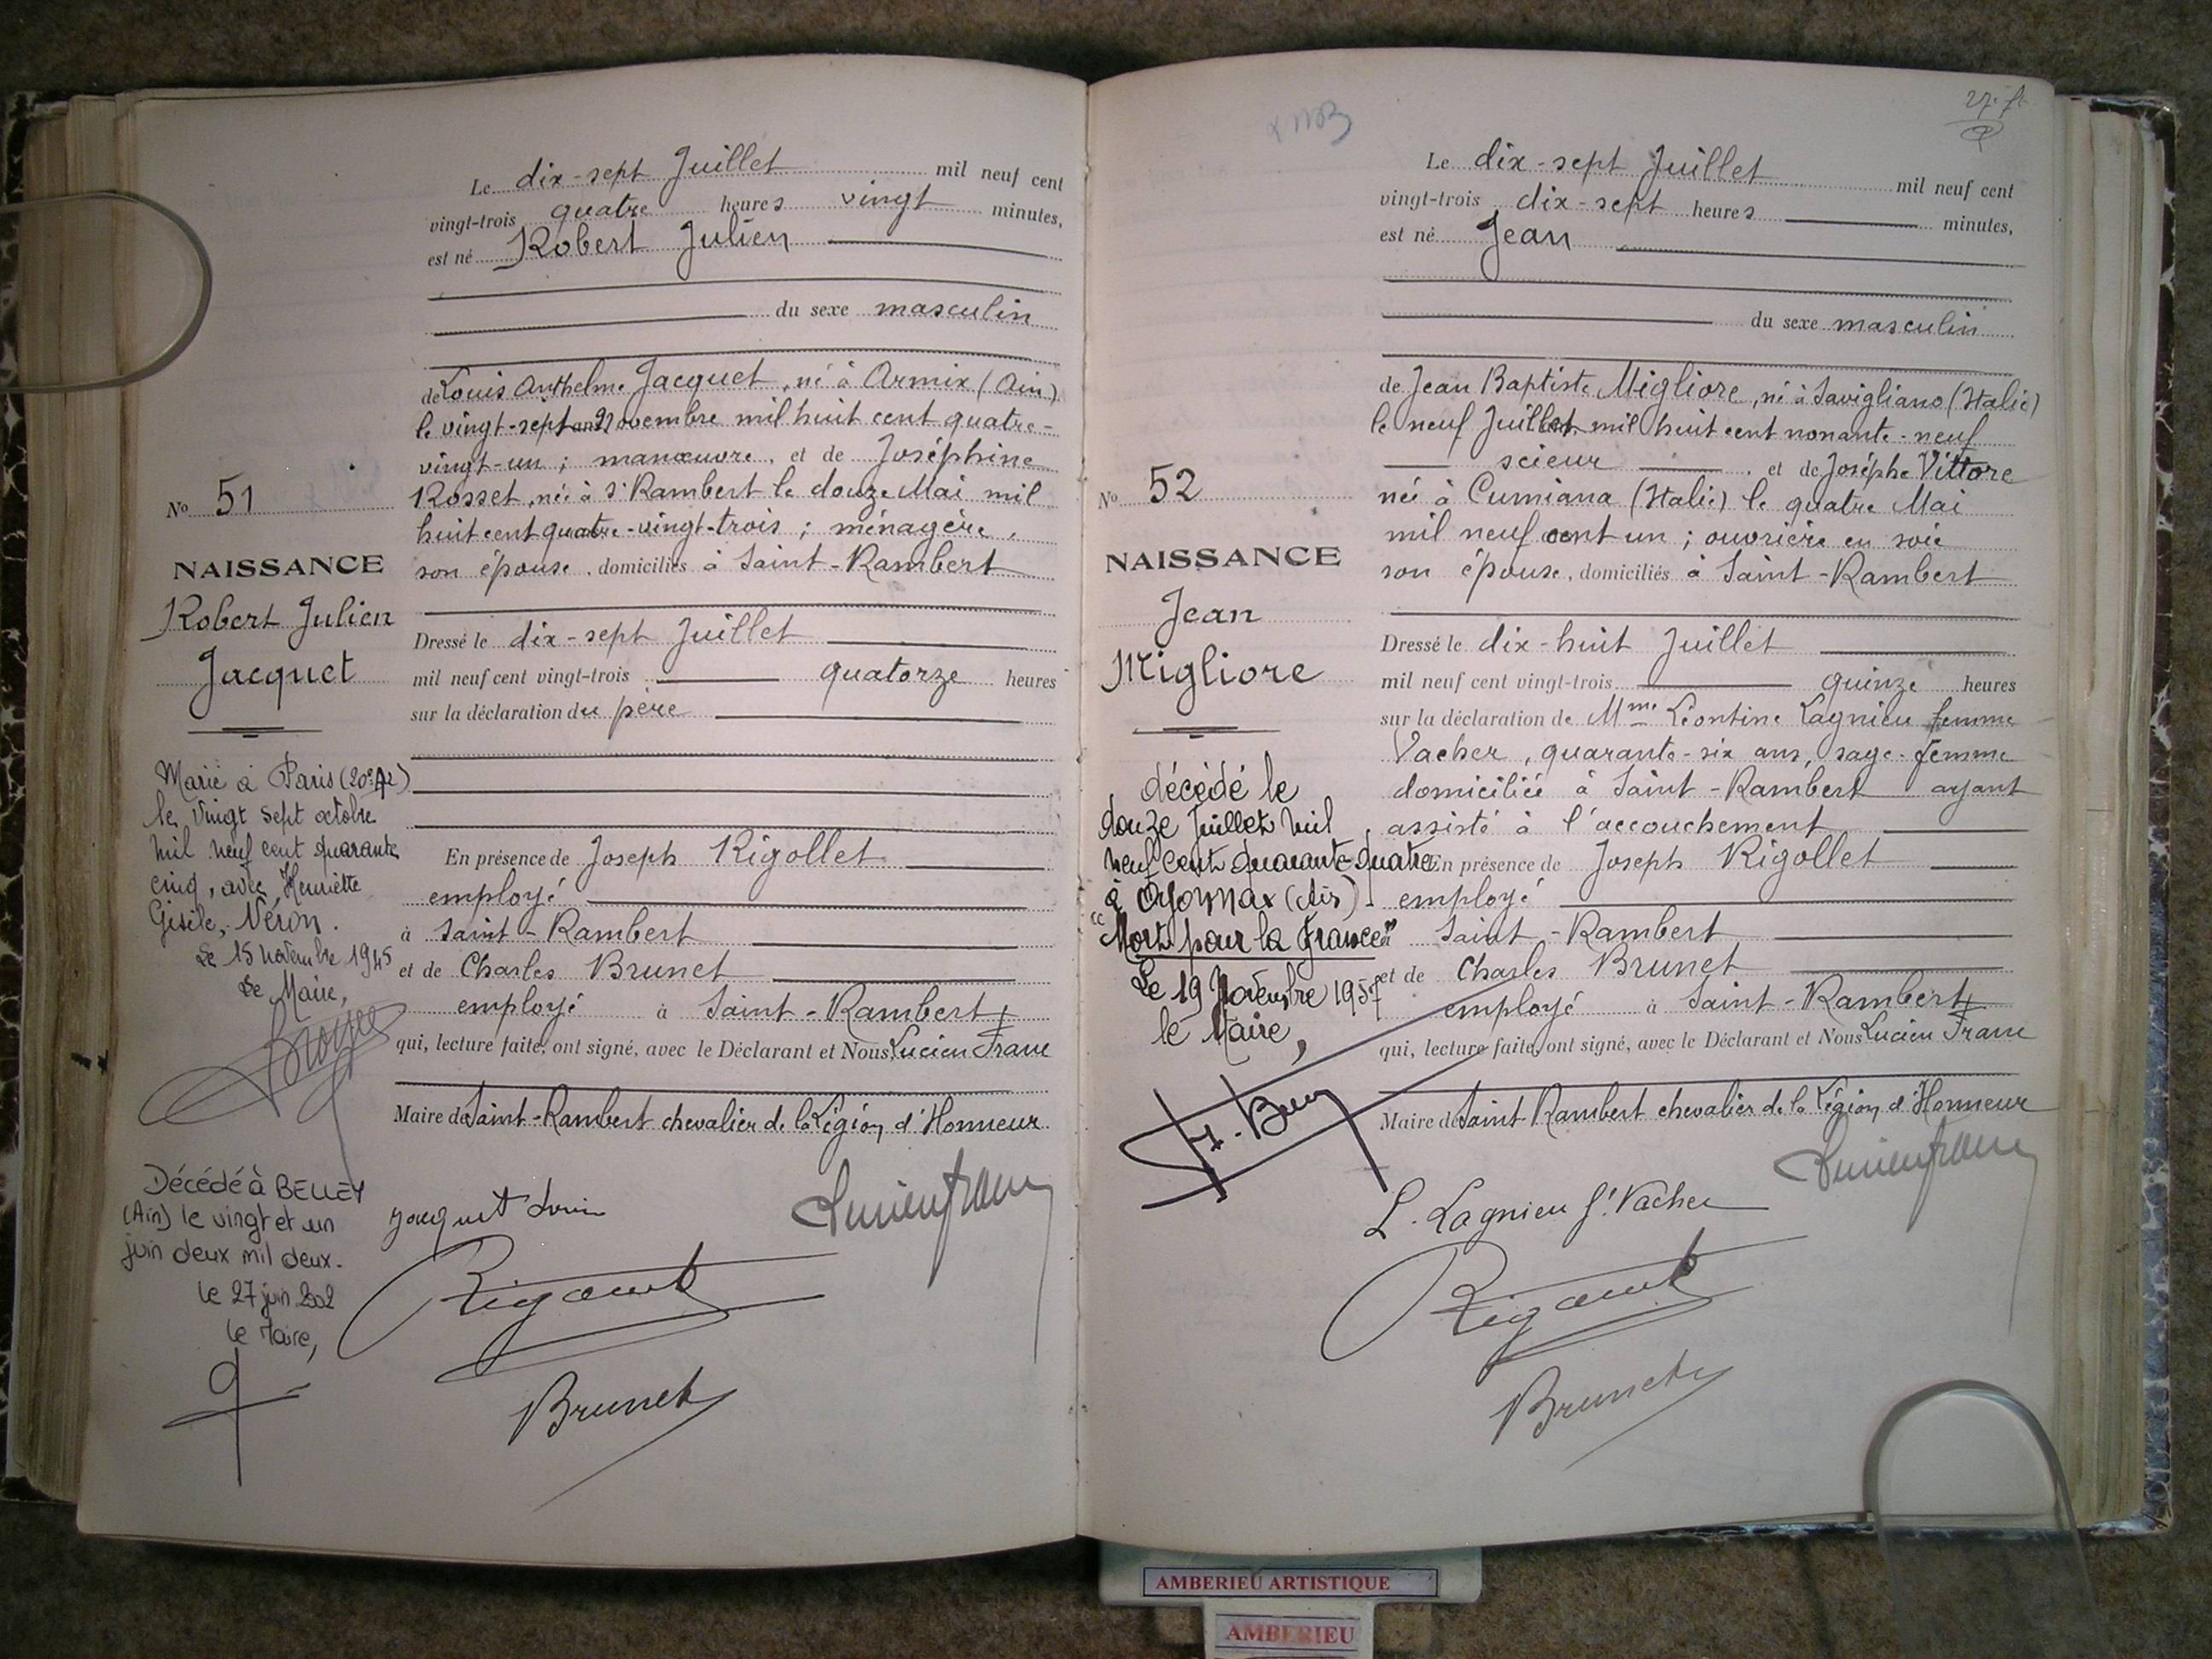 Le dix-sept Juillet mil neuf cent
vingt-trois quatre heures vingt minutes,
est né Robert Julien
du sexe masculin
de Louis Anthelme Jacquet, né à Armix (Ain)
le vingt-sept novembre mil huit cent quatre-
vingt-un ; manœuvre, et de Joséphine
Rosset, née à St Rambert le douze Mai mil
huit cent quatre-vingt-trois ; ménagère,
son épouse, domiciliés à Saint-Rambert
Dressé le dix-sept Juillet
mil neuf cent vingt-trois quatorze heures
sur la déclaration du père
En présence de Joseph Rigollet
employé
à Saint-Rambert
et de Charles Brunet
employé à Saint-Rambert
qui, lecture faite, ont signé, avec le Déclarant et Nous Lucien Franc
Maire de Saint-Rambert chevalier de la Légion d'Honneur
Jacquet Louis
Brunet
No 51
NAISSANCE
Robert Julien
Jacquet
Marié à Paris (20e Ar)
le vingt sept octobre
mil neuf cent quarante
cinq, avec Henriette
Gisèle, Néron.
Le 15 novembre 1945
Le Maire,
Décédé à BELLEY
(Ain) le vingt et un
juin deux mil deux.
le 27 juin 2002
le Maire,
Le dix-sept Juillet mil neuf cent
vingt-trois dix-sept heures minutes,
est né Jean
du sexe masculin
de Jean Baptiste Migliore, né à Savigliano (Italie)
le neuf Juillet mil huit cent nonante-neuf
scieur, et de Josèphe Vittore
née à Cumiana (Italie) le quatre Mai
mil neuf cent un ; ouvrière en soie
son épouse, domiciliés à Saint-Rambert
Dressé le dix-huit Juillet
mil neuf cent vingt-trois quinze heures
sur la déclaration de Mme Léontine Lagnieu femme
Vacher, quarante-six ans, sage-femme
domiciliée à Saint-Rambert ayant
assisté à l'accouchement
En présence de Joseph Rigollet
employé
à Saint-Rambert
et de Charles Brunet
employé à Saint-Rambert
qui, lecture faite, ont signé, avec le Déclarant et Nous Lucien Franc
Maire de Saint-Rambert chevalier de la Légion d'Honneur
L. Lagnieu f. Vacher
Brunet
No 52
NAISSANCE
Jean
Migliore
décédé le
douze Juillet mil
neuf cent quarante-quatre
à Oyonnax (Ain)
"Mort pour la France"
Le 19 Novembre 1957
le Maire,
AMBERIEU ARTISTIQUE
AMBERIEU